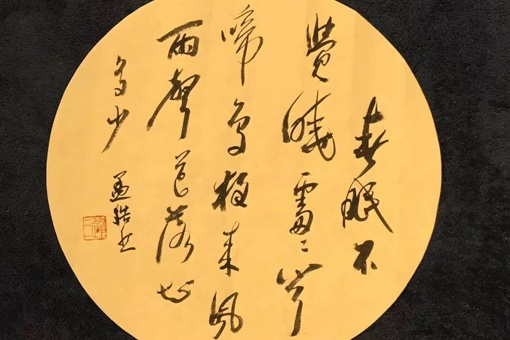 春眠不
覺曉處々聞
啼鳥夜来風
雨聲花落知
多少
孟浩书